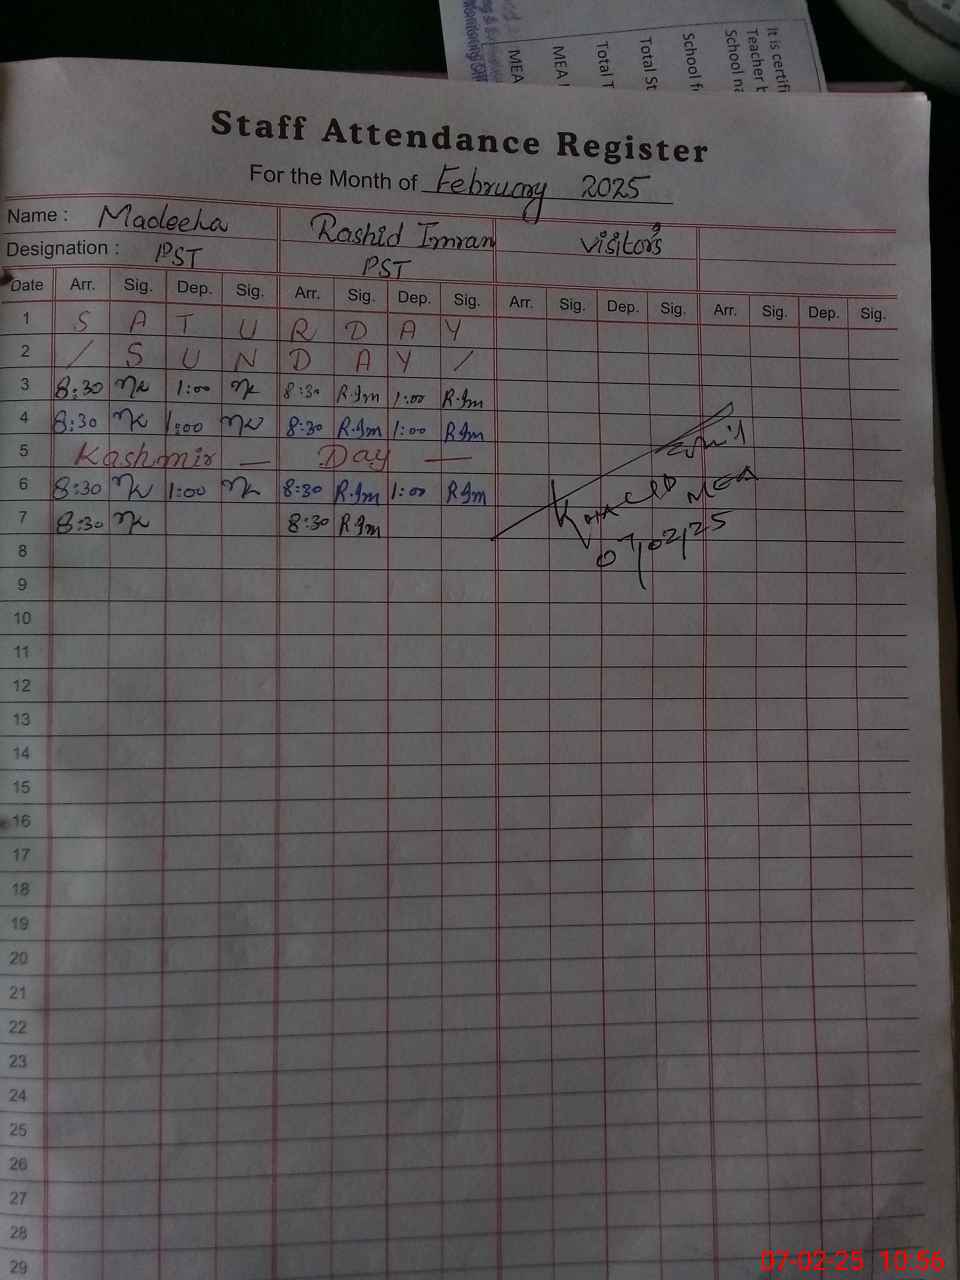 It is certifi
Teacher b
School na
School f
Total St
Total T
MEA
MEA
Staff Attendance Register
For the Month of February 2025
Name : Madeeha Rashid Imran visitors
Designation : PST PST
Date Arr. Sig. Dep. Sig. Arr. Sig. Dep. Sig. Arr. Sig. Dep. Sig. Arr. Sig. Dep. Sig.
1 S A T U R D A Y
2 / S U N D A Y /
3 8:30 1:00 8:30 R.Im 1:00 R.Im
4 8:30 1:00 8:30 R.Im 1:00 R.Im
5 Kashmir — Day —
6 8:30 1:00 8:30 R.Im 1:00 R.Im
7 8:30 8:30 R.Im
MEA
07/02/25
8
9
10
11
12
13
14
15
16
17
18
19
20
21
22
23
24
25
26
27
28
29
07-02-25 10:56